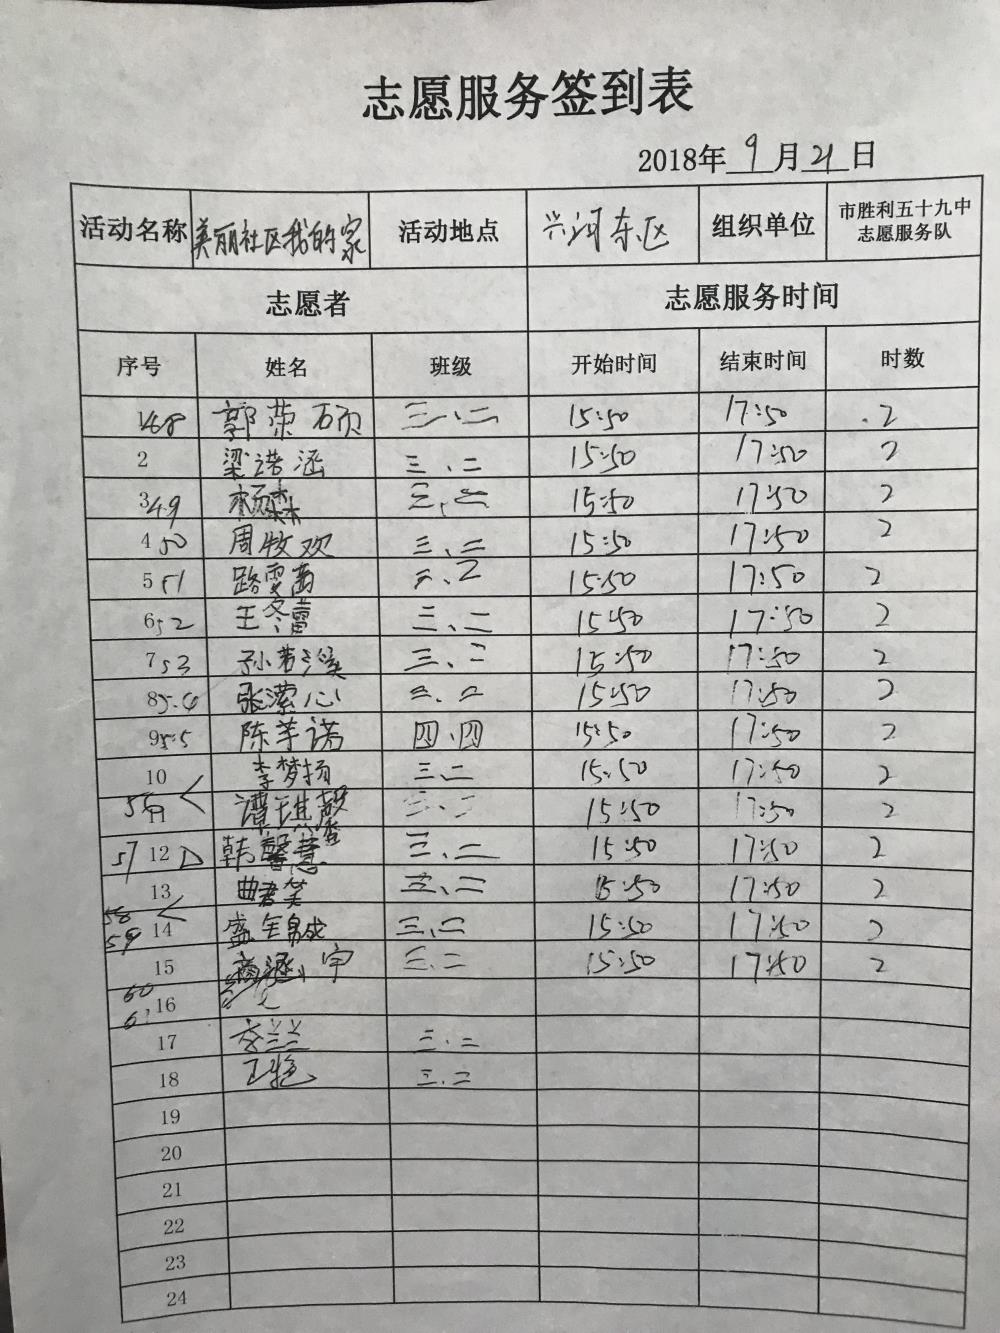 志愿服务签到表
2018年 9 月 21 日
活动名称 美丽社区我的家 活动地点 兴河东区 组织单位 市胜利五十九中
志愿服务队
志愿者 志愿服务时间
序号 姓名 班级 开始时间 结束时间 时数
1 48 郭荣硕 三、二 15:50 17:50 2
2 梁诺涵 三、二 15:50 17:50 2
3 49 三、二 15:50 17:50 2
4 50 周牧欢 三、二 15:50 17:50 2
5 51 路雯茜 三、2 15:50 17:50 2
6 52 王冬蕾 三、二 15:50 17:50 2
7 53 孙若溪 三、二 15:50 17:50 2
8 54 张潆心 三、二 15:50 17:50 2
9 55 陈芊诺 四、四 15:50 17:50 2
10 李梦扬 三、二 15:50 17:50 2
11 56 三、二 15:50 17:50 2
57 12 韩馨慧 三、二 15:50 17:50 2
13 曲君笑 三、二 15:50 17:50 2
58
59 14 盛 三、二 15:50 17:50 2
15 宇 三、二 15:50 17:50 2
60
61 16
17 李兰兰 三、二
18 王艳 三、二
19
20
21
22
23
24